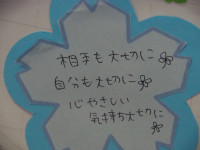 相手も大切に
自分も大切に
心やさしい
気持ち大切に